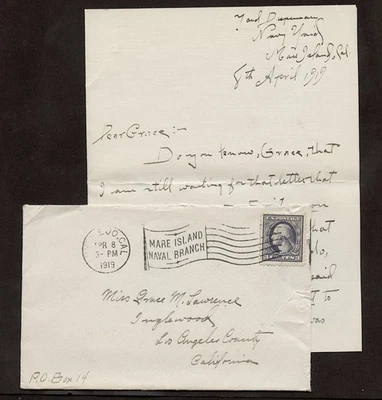 Yard Dispensary
Navy Yard
Mare Island, Cal.
8th April 1919
Dear Grace:-
Do you know, Grace, that
I am still waiting for that letter that
you
that
do,
said
t to
was
APR 8
3-PM
1919
MARE ISLAND
NAVAL BRANCH
U.S. POSTAGE
3 CENTS 3
Miss Grace M. Lawrence
Inglewood
Los Angeles County
California
P.O. Box 14